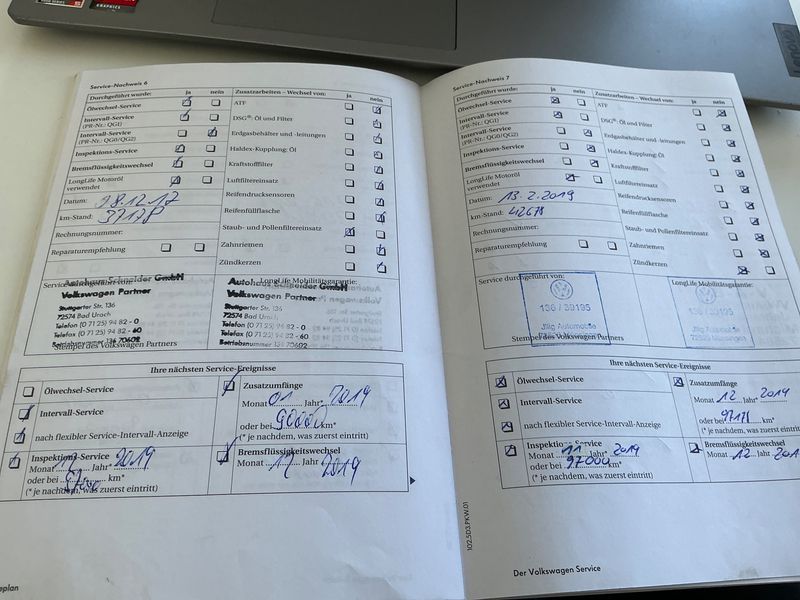 GRAPHICS
Lenovo
Service-Nachweis 6
Durchgeführt wurde: ja nein
Ölwechsel-Service
Intervall-Service
(PR-Nr.: QG1)
Intervall-Service
(PR-Nr.: QG0/QG2)
Inspektions-Service
Bremsflüssigkeitswechsel
LongLife Motoröl
verwendet
Datum: 28.12.17
km-Stand: 37178
Rechnungsnummer:
Reparaturempfehlung
Zusatzarbeiten – Wechsel von: ja nein
ATF
DSG®: Öl und Filter
Erdgasbehälter und -leitungen
Haldex-Kupplung: Öl
Kraftstofffilter
Luftfiltereinsatz
Reifendrucksensoren
Reifenfüllflasche
Staub- und Pollenfiltereinsatz
Zahnriemen
Zündkerzen
Service durchgeführt von:
Autohaus Schneider GmbH
Volkswagen Partner
Stuttgarter Str. 136
72574 Bad Urach
Telefon (0 71 25) 94 82 - 0
Telefax (0 71 25) 94 82 - 60
Betriebsnummer 136 70602
Stempel des Volkswagen Partners
LongLife Mobilitätsgarantie:
Autohaus Schneider GmbH
Volkswagen Partner
Stuttgarter Str. 136
72574 Bad Urach
Telefon (0 71 25) 94 82 - 0
Telefax (0 71 25) 94 82 - 60
Betriebsnummer 136 70602
Ihre nächsten Service-Ereignisse
Ölwechsel-Service
Intervall-Service
nach flexibler Service-Intervall-Anzeige
Inspektions-Service
Monat Jahr* 2019
oder bei km*
(* je nachdem, was zuerst eintritt)
Zusatzumfänge
Monat 01 Jahr* 2019
oder bei km*
(* je nachdem, was zuerst eintritt)
Bremsflüssigkeitswechsel
Monat 12 Jahr 2019
Service-Nachweis 7
Durchgeführt wurde: ja nein
Ölwechsel-Service
Intervall-Service
(PR-Nr.: QG1)
Intervall-Service
(PR-Nr.: QG0/QG2)
Inspektions-Service
Bremsflüssigkeitswechsel
LongLife Motoröl
verwendet
Datum: 13.2.2019
km-Stand: 42678
Rechnungsnummer:
Reparaturempfehlung
Zusatzarbeiten – Wechsel von: ja nein
ATF
DSG®: Öl und Filter
Erdgasbehälter und -leitungen
Haldex-Kupplung: Öl
Kraftstofffilter
Luftfiltereinsatz
Reifendrucksensoren
Reifenfüllflasche
Staub- und Pollenfiltereinsatz
Zahnriemen
Zündkerzen
Service durchgeführt von:
136 / 39195
Jilg Automobile
Stempel des Volkswagen Partners
LongLife Mobilitätsgarantie:
136 / 39195
Jilg Automobile
Ihre nächsten Service-Ereignisse
Ölwechsel-Service
Intervall-Service
nach flexibler Service-Intervall-Anzeige
Inspektions-Service
Monat 11 Jahr* 2019
oder bei 97000 km*
(* je nachdem, was zuerst eintritt)
Zusatzumfänge
Monat 12 Jahr* 2019
oder bei 97178 km*
(* je nachdem, was zuerst eintritt)
Bremsflüssigkeitswechsel
Monat 12 Jahr
102.5D3.PKW.01
Der Volkswagen Service